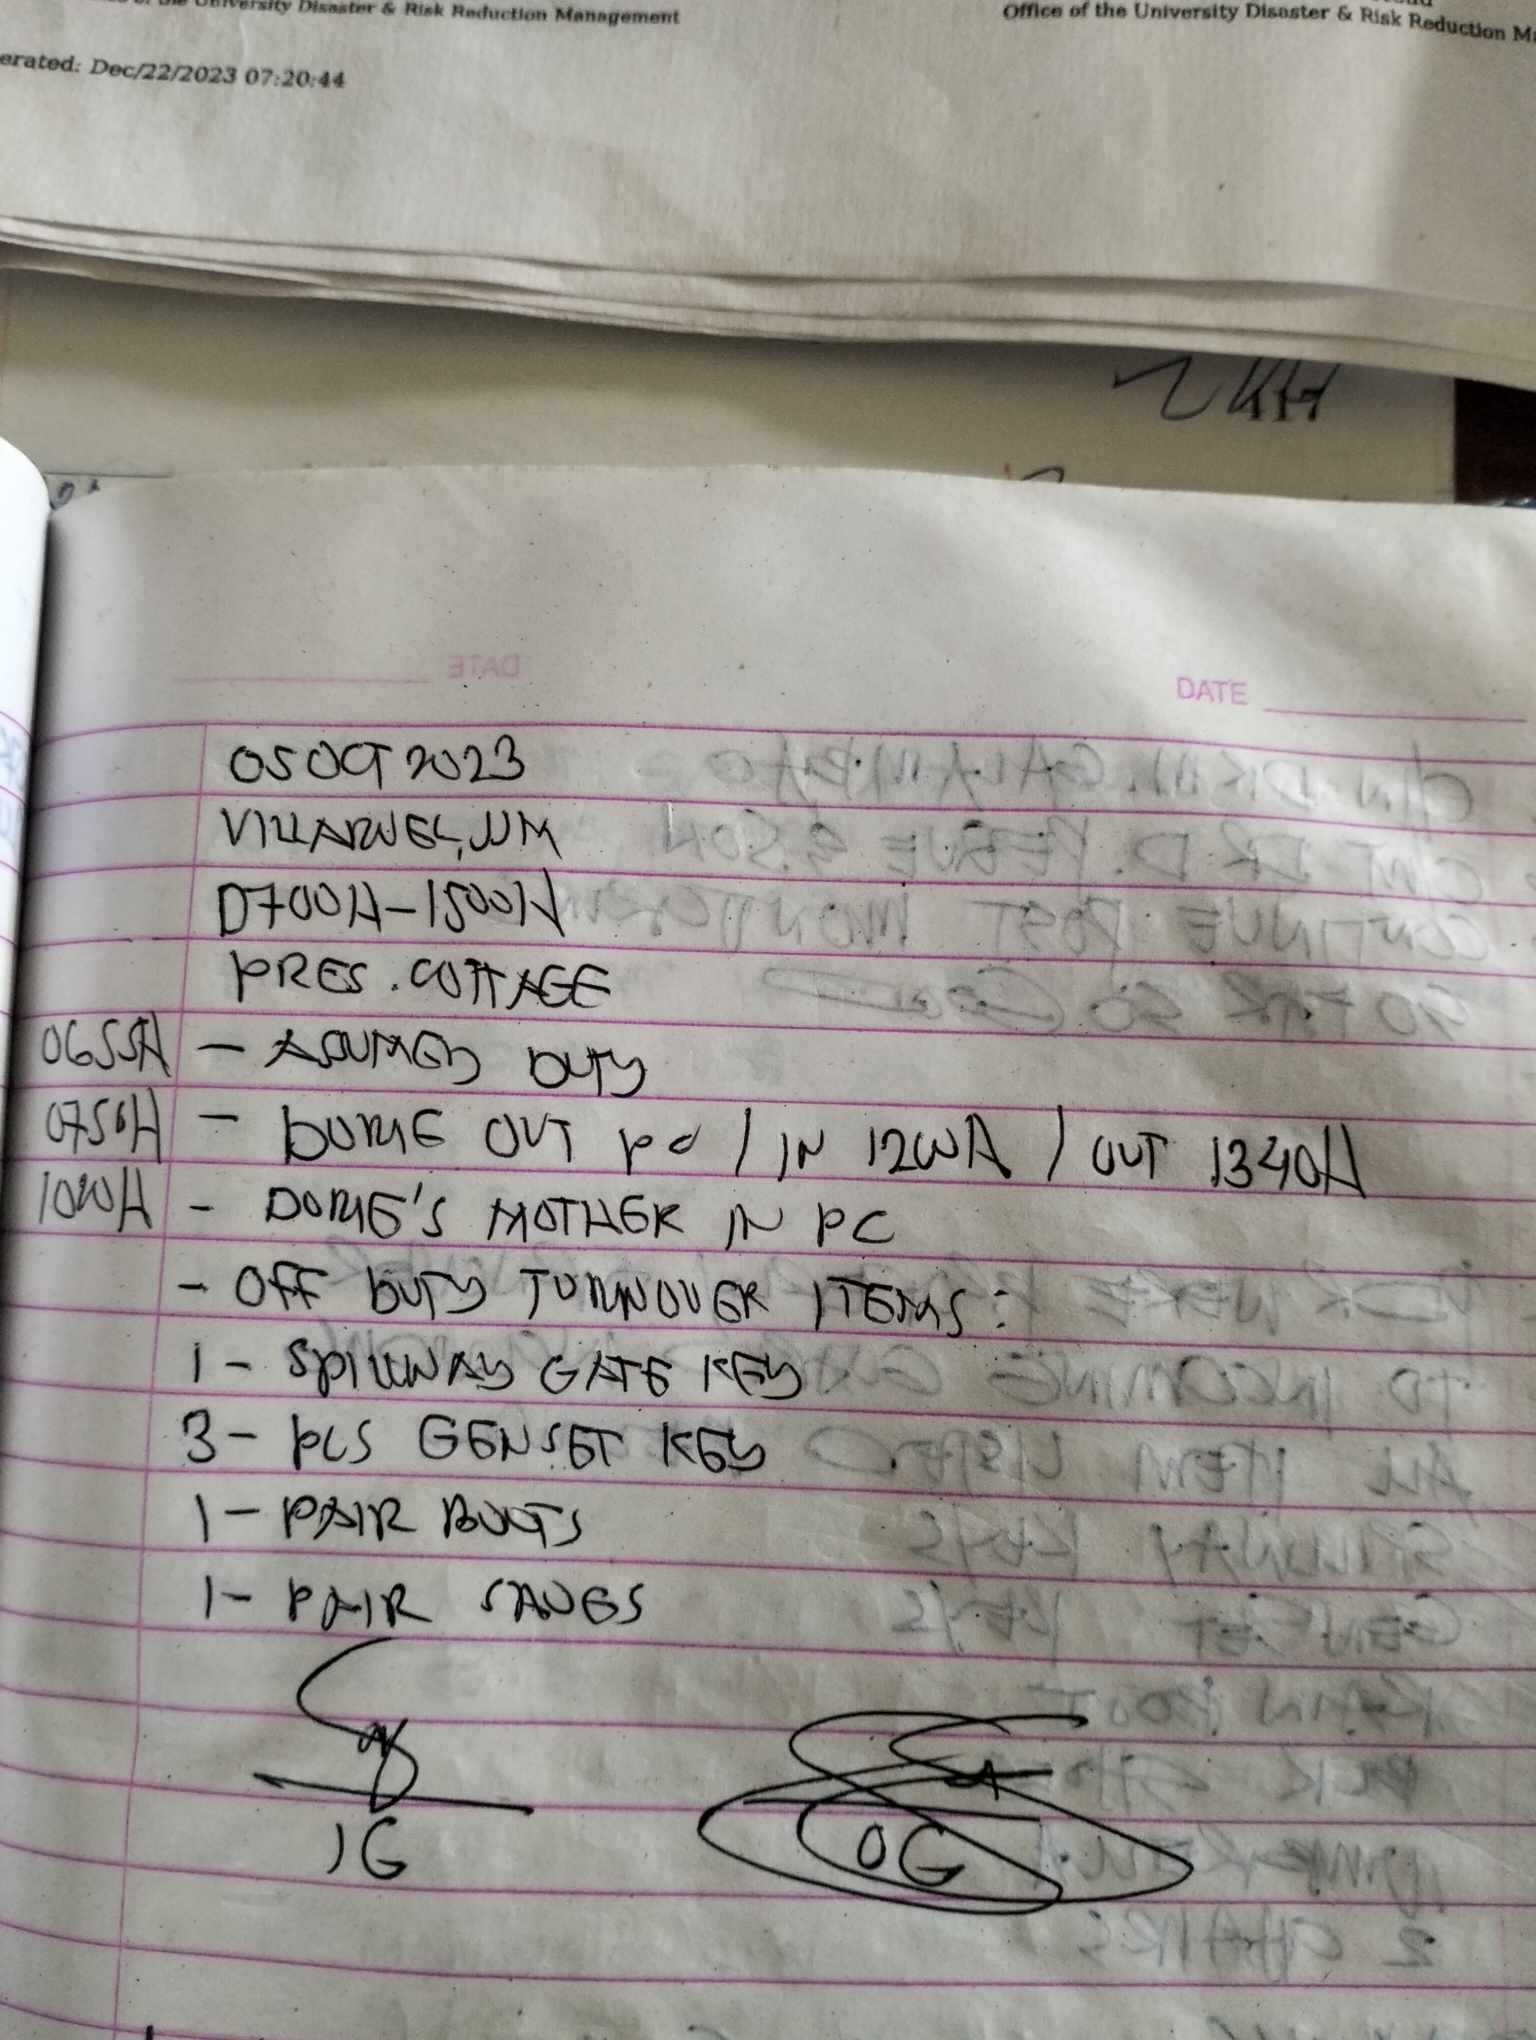 University Disaster & Risk Reduction Management
Office of the University Disaster & Risk Reduction
erated: Dec/22/2023 07:20:44
DATE
05 OCT 2023
VILLARUEL, JJM
0700H-1500H
PRES. COTTAGE
0655H - ASUMED DUTY
0750H - DORIE OUT PC / IN 1200H / OUT 1340H
1020H - DORIE'S MOTHER IN PC
- OFF DUTY TURNOVER ITEMS:
1 - SPILLWAY GATE KEY
3 - PCS GENSET KEY
1 - PAIR BOOTS
1 - PAIR
IG OG